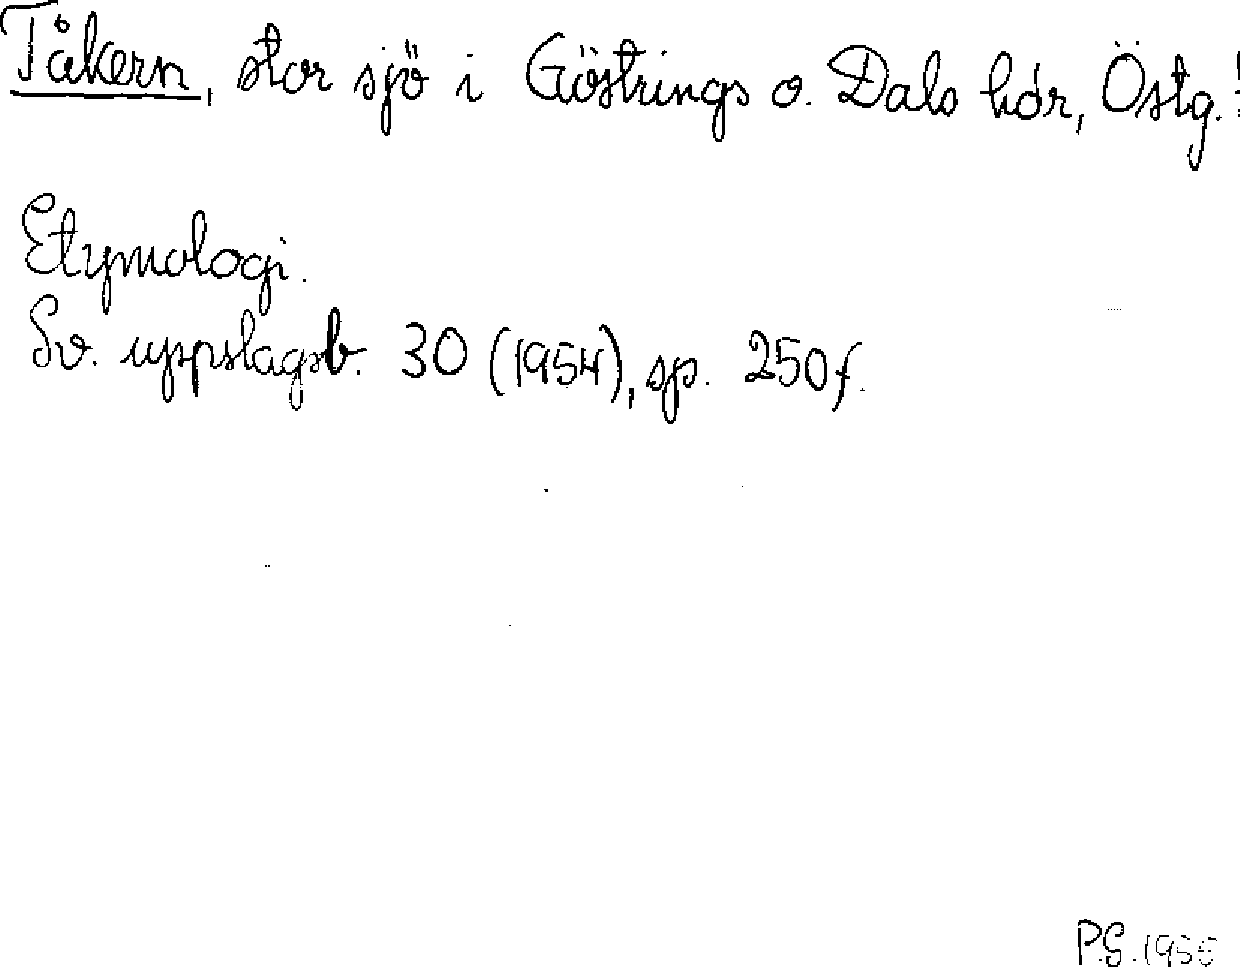 Tåkern, stor sjö i Göstrings o. Dals hdr, Östg.!
Etymologi.
Sv. uppslagsb. 30 (1954), sp. 250f.
P.G. 1955